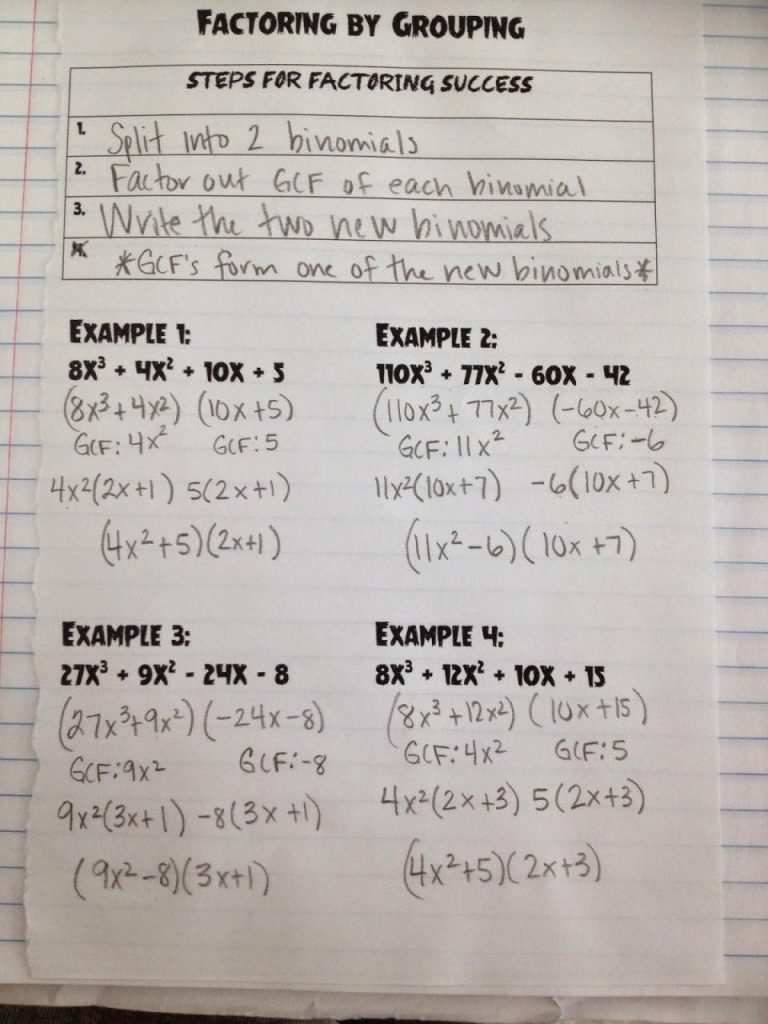 FACTORING BY GROUPING
STEPS FOR FACTORING SUCCESS
1. Split into 2 binomials
2. Factor out GCF of each binomial
3. Write the two new binomials
*GCF's form one of the new binomials*
EXAMPLE 1:
8X³ + 4X² + 10X + 5
(8x³+4x²) (10x+5)
GCF: 4x² GCF: 5
4x²(2x+1) 5(2x+1)
(4x²+5)(2x+1)
EXAMPLE 2:
110X³ + 77X² - 60X - 42
(110x³+77x²) (-60x-42)
GCF: 11x² GCF: -6
11x²(10x+7) -6(10x+7)
(11x²-6)(10x+7)
EXAMPLE 3:
27X³ + 9X² - 24X - 8
(27x³+9x²)(-24x-8)
GCF: 9x² GCF: -8
9x²(3x+1) -8(3x+1)
(9x²-8)(3x+1)
EXAMPLE 4:
8X³ + 12X² + 10X + 15
(8x³+12x²) (10x+15)
GCF: 4x² GCF: 5
4x²(2x+3) 5(2x+3)
(4x²+5)(2x+3)